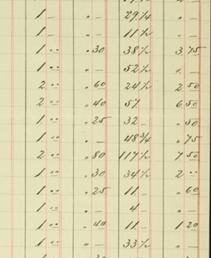 1 – . – 29¼
1 – . – 11½
1 " . 30 38½ 3 75
1 " . – 52½ . –
2 " . 60 24½ 2 50
2 " . 40 57 6 50
1 " . 25 32 – . 50
1 " . – 48¾ . 75
2 " . 80 117½ 7 50
1 " . 30 34½ 2 "
1 " . 25 11 – . 60
1 " . – 4 – . –
1 " . 40 11 – 1 20
1 " . – 33½ . –